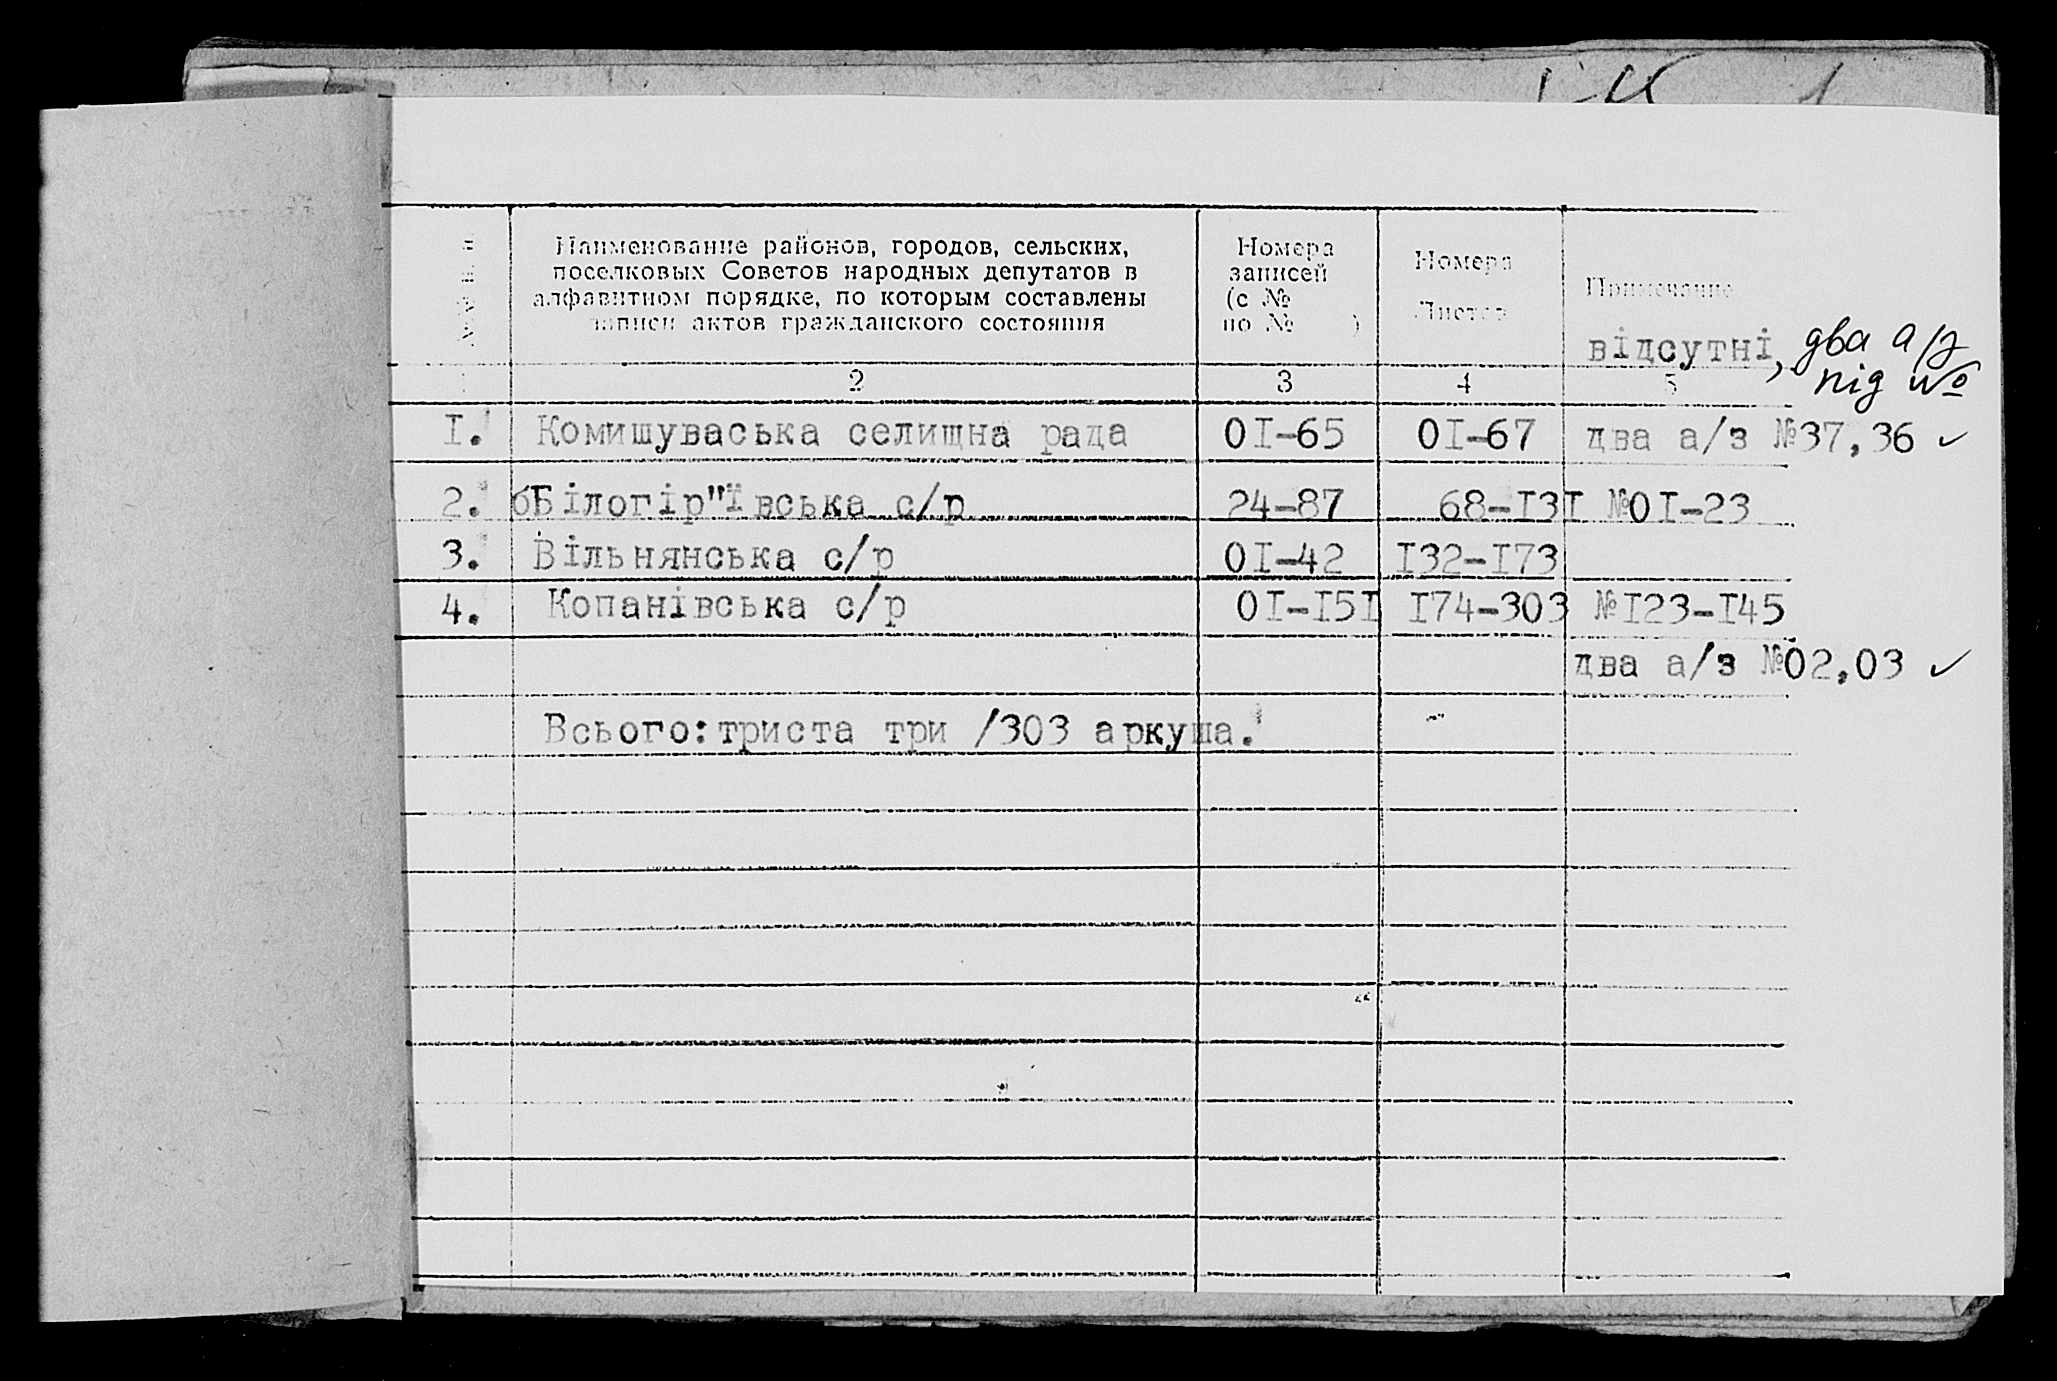 Наименование районов, городов, сельских,
поселковых Советов народных депутатов в
алфавитном порядке, по которым составлены
записи актов гражданского состояния
Номера
записей
(с №
по № )
Номера
Листов
Примечание
відсутні, два а/з
під №
2 3 4 5
1. Комишуваська селищна рада 01-65 01-67 два а/з №37,36 ✓
2. бБілогір"ївська с/р 24-87 68-131 №01-23
3. Вільнянська с/р 01-42 132-173
4. Копанівська с/р 01-151 174-303 №123-145
два а/з №02,03 ✓
Всього:триста три /303 аркуша.